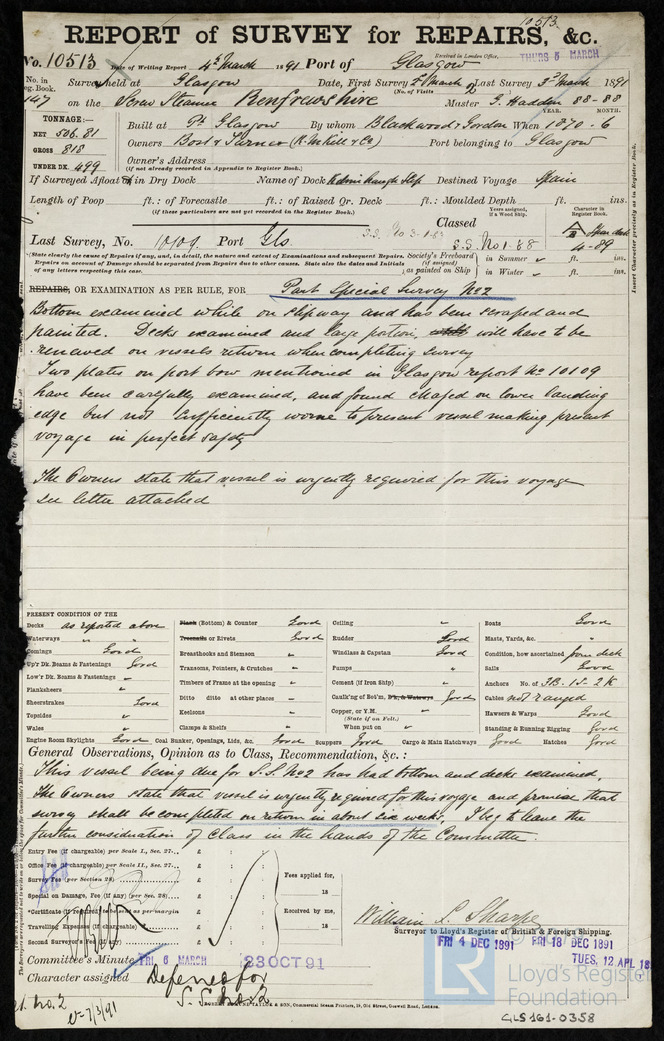 10513
REPORT of SURVEY for REPAIRS, &c.
No. 10513 Date of Writing Report 4th March 1891 Port of Glasgow Received in London Office, THURS 5 MARCH
No. in Reg. Book. 147 Survey held at Glasgow Date, First Survey 2d March Last Survey 3d March 1891
(No. of Visits)
on the Screw Steamer Renfrewshire Master G. Hadden 88-88
TONNAGE:—
NET 506.81
GROSS 818
UNDER DK. 499
Built at Pt Glasgow By whom Blackwood & Gordon When 1870 - 6
YEAR. MONTH.
Owners (R. McKill & Co) Port belonging to Glasgow
Owner's Address
(If not already recorded in Appendix to Register Book.)
If Surveyed Afloat or in Dry Dock Name of Dock Kelvinhaugh Slip Destined Voyage Spain
Length of Poop ft.: of Forecastle ft.: of Raised Qr. Deck ft.: Moulded Depth ft. ins.
(If these particulars are not yet recorded in the Register Book.)
Years assigned, if a Wood Ship. Character in Register Book.
Classed
S.S. No 3-1-83
S.S. No 1-88
4-89
Last Survey, No. 10109 Port Gls.
(State clearly the cause of Repairs if any, and, in detail, the nature and extent of Examinations and subsequent Repairs. Repairs on account of Damage should be separated from Repairs due to other causes. State also the dates and Initials of any letters respecting this case.
Society's Freeboard (if assigned) as painted on Ship } in Summer " ft. ins.
in Winter " ft. ins.
Insert Character precisely as in Register Book.
REPAIRS, OR EXAMINATION AS PER RULE, FOR Part Special Survey No 2
Bottom examined while on slipway and has been scraped and
painted. Decks examined and large portion, will have to be
renewed on vessels return when completing survey
Two plates on port bow mentioned in Glasgow report No. 10109
have been carefully examined, and found chafed on lower landing
edge but not sufficiently worn to prevent vessel making present
voyage in perfect safety
The Owners state that vessel is urgently required for this voyage
see letter attached
PRESENT CONDITION OF THE
Decks as reported above
Waterways " "
Comings Good
Up'r Dk. Beams & Fastenings Good
Low'r Dk. Beams & Fastenings "
Planksheers "
Sheerstrakes Good
Topsides "
Wales "
Plank (Bottom) & Counter Good
Treenails or Rivets Good
Breasthooks and Stemson "
Transoms, Pointers, & Crutches "
Timbers of Frame at the opening "
Ditto ditto at other places "
Keelsons "
Clamps & Shelfs "
Ceiling "
Rudder Good
Windlass & Capstan Good
Pumps "
Cement (if Iron Ship) "
Caulk'ng of Bot'm, D'k, & Waterways Good
Copper, or Y.M. "
(State if on Felt.)
When put on "
Boats Good
Masts, Yards, &c. "
Condition, how ascertained from deck
Sails Good
Anchors No. of 3B. 1S. 2K
Cables not ranged
Hawsers & Warps Good
Standing & Running Rigging Good
Engine Room Skylights Good Coal Bunker, Openings, Lids, &c. Good Scuppers Good Cargo & Main Hatchways Good Hatches Good
General Observations, Opinion as to Class, Recommendation, &c.:
This vessel being due for S.S. No 2 has had bottom and decks examined,
The Owners state that vessel is urgently required for this voyage and promise that
survey shall be completed on return in about six weeks, I beg to leave the
further consideration of Class in the hands of the Committee.
Entry Fee (if chargeable) per Scale I., Sec. 27... £ : :
Office Fee (if chargeable) per Scale II., Sec. 27... £ : :
Survey Fee (per Section 28) £ : :
Special on Damage, Fee (if any) (per Sec. 28) £ : :
*Certificate (if required) to be sent as per margin £ : :
Travelling Expenses (if chargeable) £ : :
Second Surveyor's Fee (if any) £ : :
Fees applied for,
18
Received by me,
18
William L. Sharpe
Surveyor to Lloyd's Register of British & Foreign Shipping.
FRI 4 DEC 1891 FRI 18 DEC 1891
TUES, 12 APL 18
Committee's Minute FRI 6 MARCH 23 OCT 91
Character assigned Deferred for
S.S. No. 2
7/3/91
TAYLOR & SON, Commercial Steam Printers, 19, Old Street, Goswell Road, London.
LR
Lloyd's Register
Foundation
GLS161-0358